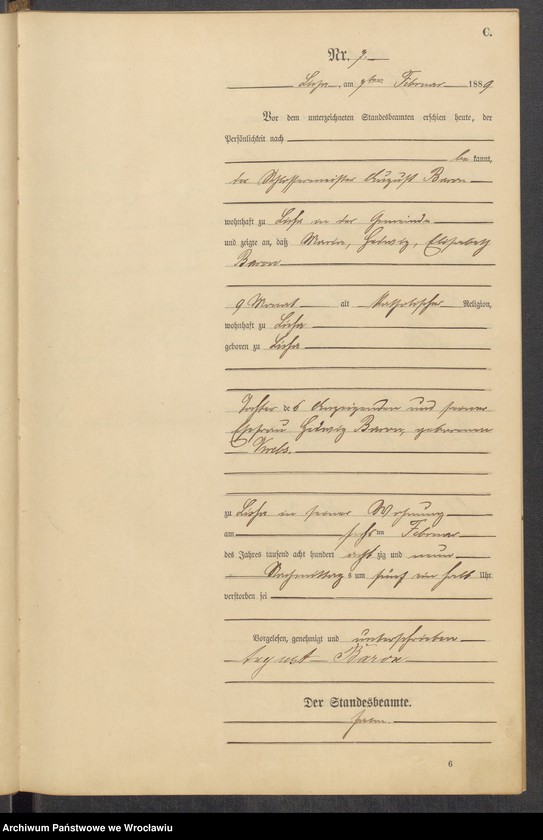 C.
Nr. 9
am 9ten Februar 1889
Vor dem unterzeichneten Standesbeamten erschien heute, der
Persönlichkeit nach
be kannt,
der Schlossermeister August Baron
wohnhaft zu Lissa in der Gemeinde
und zeigte an, daß Maria, Hedwig, Elisabeth
Baron
9 Monat alt katholischer Religion,
wohnhaft zu Lissa
geboren zu Lissa
Tochter des Anzeigenden und seiner
Ehefrau Hedwig Baron, geborenen
zu Lissa in seiner Wohnung
am ten Februar
des Jahres tausend acht hundert acht zig und neun
Nachmittags um fünf ein halb Uhr
verstorben sei
Vorgelesen, genehmigt und unterschrieben
August Baron
Der Standesbeamte.
6
Archiwum Państwowe we Wrocławiu